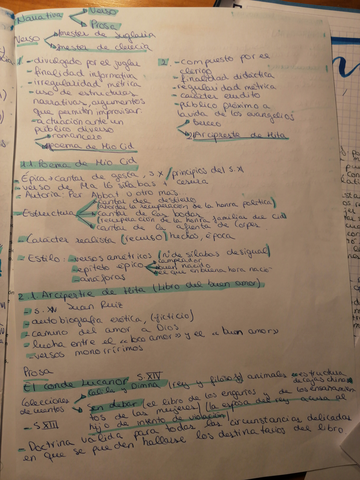 Narrativa
Verso
Prosa
Verso
mester de juglaria
mester de clerecia
1. - divulgado por el juglar
- finalidad informativa
- irregularidad métrica
- uso de estructuras
narrativas, argumentos
que permiten improvisar
- actuación ante un
público diverso
romancero
poema de Mio Cid
2. - compuesto por el
clerigo
- finalidad didactica
- regularidad métrica
- carácter erudito
- público próximo a
la vida de los
Arcipreste de Hita
1.1 Poema de Mio Cid
- Epica = cantar de gesta, s.X / principios del s.X
- verso de 14 a 16 silabas + cesura
- Autoria: Per Abbat u otro mas
- Estructura
cantar del destierro
(recuperación de la honra politica)
cantar de las bodas
(recuperación de la honra familiar del Cid)
cantar de la afrenta de Corpes
- Carácter realista (recurso) hechos, época
- Estilo:
versos ametricos (nº de silabas desigual)
epiteto épico
campeador
bien nacido
el que en buena hora nacio
anáforas
2.1. Arcipreste de Hita (Libro del buen amor)
- s.XIV Juan Ruiz
- autobiografia erotica, (ficticio)
- camino del amor a Dios
- lucha entre el «loco amor» y el «buen amor»
- versos monorrimos
Prosa
El conde Lucanor S.XIV
Colecciones
de cuentos
Calila y Dimna (rey y filosofo) animales
estructura
de cajas chinas
Sendebar (el libro de los engaños y de los
tos de las mujeres) (la esposa del rey acusa al
hijo de intento de violacion)
- S.XIII
- Doctrina valida para todas las circunstancias delicadas
en que se pueden hallarse los destinatarios del libro